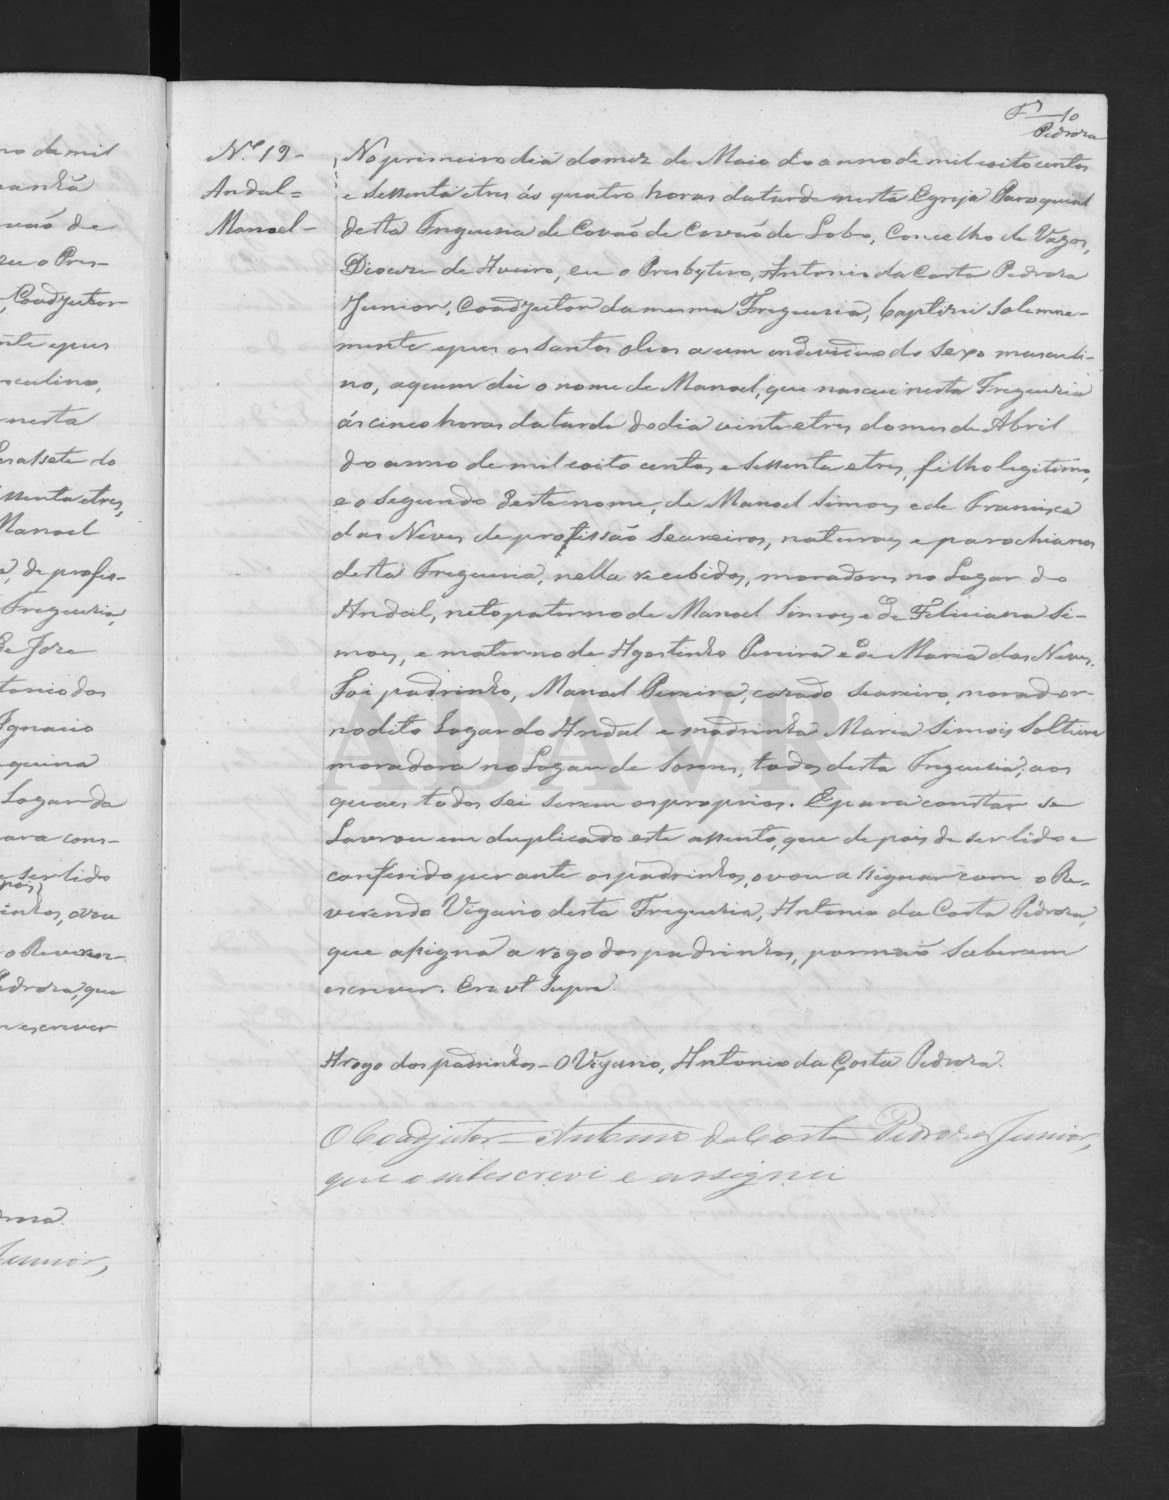 10
Pedroza
Nº 19-
Andal=
Manoel-
No primeiro dia do mez de Maio do anno de mil oito centos
e sessenta e tres ás quatro horas da tarde nesta Egreja Paroquial
desta Freguesia de Covaõ de Covaõ de Lobo, Concelho de Vagos,
Diocese de Aveiro, eu o Presbytero, Antonio da Costa Pedroza
Junior, Coadjutor da mesma Freguesia, baptizei solemne-
mente e pus os santos oleos a um individuo do sexo masculi-
no, a quem dei o nome de Manoel, que nasceu nesta Freguezia
ás cinco horas da tarde do dia vinte e tres do mes de Abril
do anno de mil e oito centos e sessenta e tres, filho legitimo,
e o segundo deste nome, de Manoel Simoes e de Francisca
das Neves, de profissão Seareiros, naturaes e parochianos
desta Freguesia, nella recebidos, moradores no Lugar do
Andal, neto paterno de Manoel Simoes e de Feliciana Si-
moes, e materno de Agostinho Pereira e de Maria das Neves.
Foi padrinho, Manoel Pereira, cazado seareiro, morador
no dito Lugar do Andal e madrinha Maria Simois Solteira
moradora no Logar de Sorens, todos desta Freguesia, aos
quaes todos sei serem os proprios. E para constar se
Lavrou em duplicado este assento, que depois de ser lido e
conferido perante os padrinhos, o vou assignar com o Re-
verendo Vigario desta Freguezia, Antonio da Costa Pedroza,
que assigna a rogo dos padrinhos, por naõ saberem
escrever. Era ut Supra.
A rogo dos padrinhos - O Vigario, Antonio da Costa Pedroza.
O Coadjutor - Antonio da Costa Pedroza Junior,
que o subescrevi e assignei
ADAVR
no de mil
vaõ de
eu o Pres-
Coadjutor
nte e pus
sculino,
nesta
sete do
ssenta e tres,
Manoel
de profis-
Freguesia,
de Joze
tonio dos
Ignacio
quina
Logar da
ara cons-
e ser lido
inhos, o vou
o Reveren-
edroza, que
escrever
Junior,